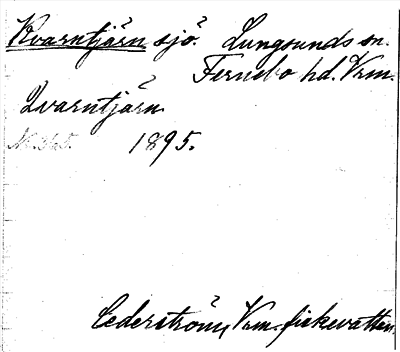 Kvarntjärn sjö. Lungsunds sn.
Fernebo hd. Vrm.
Qvarntjärn
1895.
Cederström, Vrm. fiskevatten.